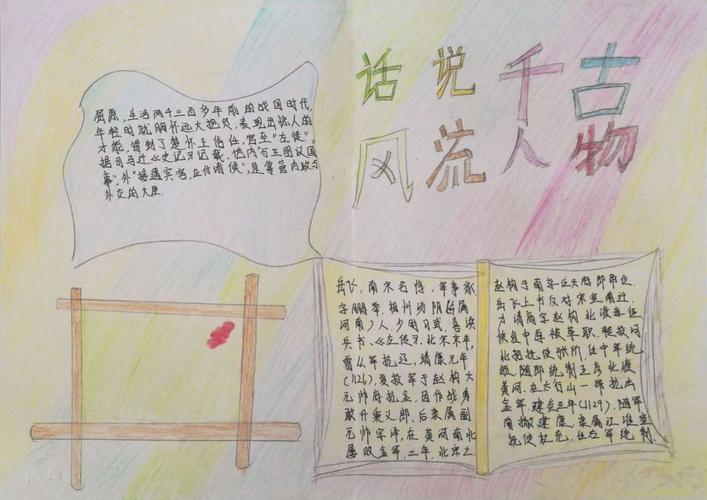 话说千古
风流人物
屈原，生活两千三百多年前的战国时代，
年轻时就胸怀远大抱负，表现出惊人的
才能，得到了楚怀王信任，官至“左徒”，
据司马迁《史记》记载，他内“与王图议国
事”，外“接遇宾客，应合诸侯”，是掌管内政与
外交的大臣.
岳飞，南宋名将，军事家
字鹏举，相州汤阴(今属
河南)人，少时习武，喜读
兵书、《左传》，北宋末年，
曾从军抗辽，靖康元年
(1126)，复投军于赵构大
元帅府抗金，因作战勇
敢升秉义郎，后隶属副
元帅宗泽，在黄河南北
屡败金军，二年，北宋亡
赵构于南京应天府即帝位.
岳飞上书反对宋室南迁.
力请高宗赵构北渡亲征
恢复中原被革职.
北招抚使张所，任中军统
领，随都统制王彦北渡
黄河，在太行山一带抗击
金军，建炎三年(1129)，随军
南撤建康，隶属江淮宣
抚使杜充，任右军统制.